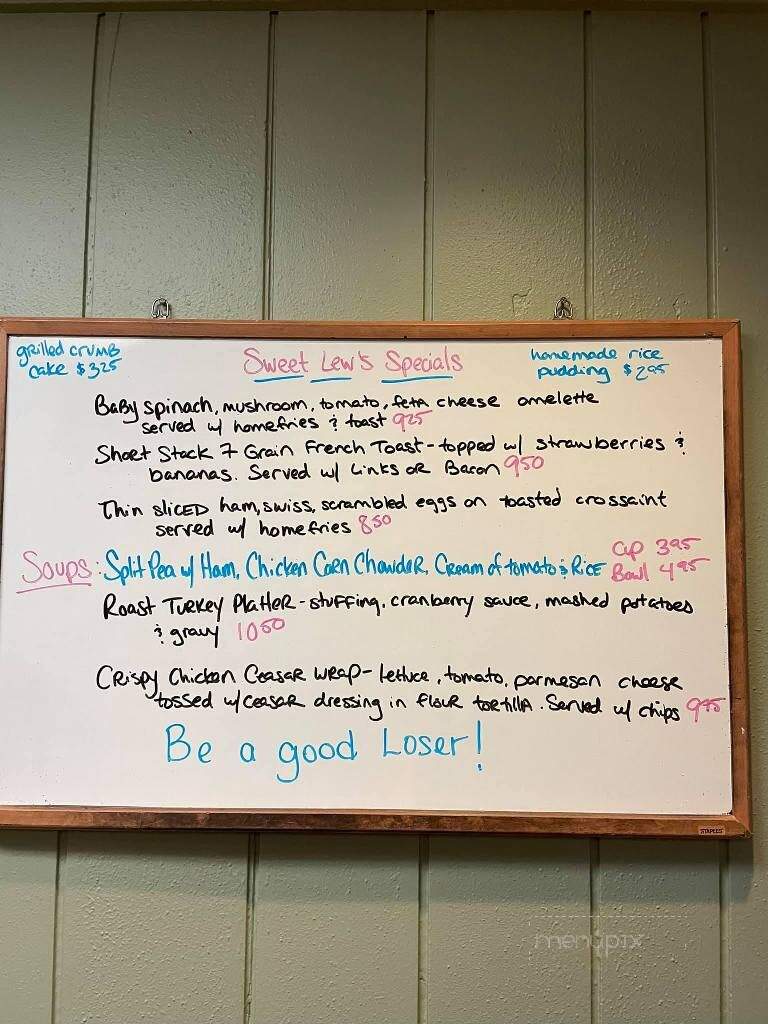 grilled crumb
cake $325
Sweet Lew's Specials
homemade rice
pudding $295
Baby spinach, mushroom, tomato, feta cheese omelette
served w/ homefries & toast 925
Short Stack 7 Grain French Toast - topped w/ strawberries &
bananas. Served w/ Links or Bacon 950
Thin sliced ham, swiss, scrambled eggs on toasted crossaint
served w/ homefries 850
Soups: Split Pea w/ Ham, Chicken Corn Chowder, Cream of tomato & Rice
Cup 395
Bowl 495
Roast Turkey Platter - stuffing, cranberry sauce, mashed potatoes
& gravy 1050
Crispy Chicken Ceasar wrap - lettuce, tomato, parmesan cheese
tossed w/ ceasar dressing in flour tortilla. Served w/ chips
Be a good Loser!
STAPLES
menupix